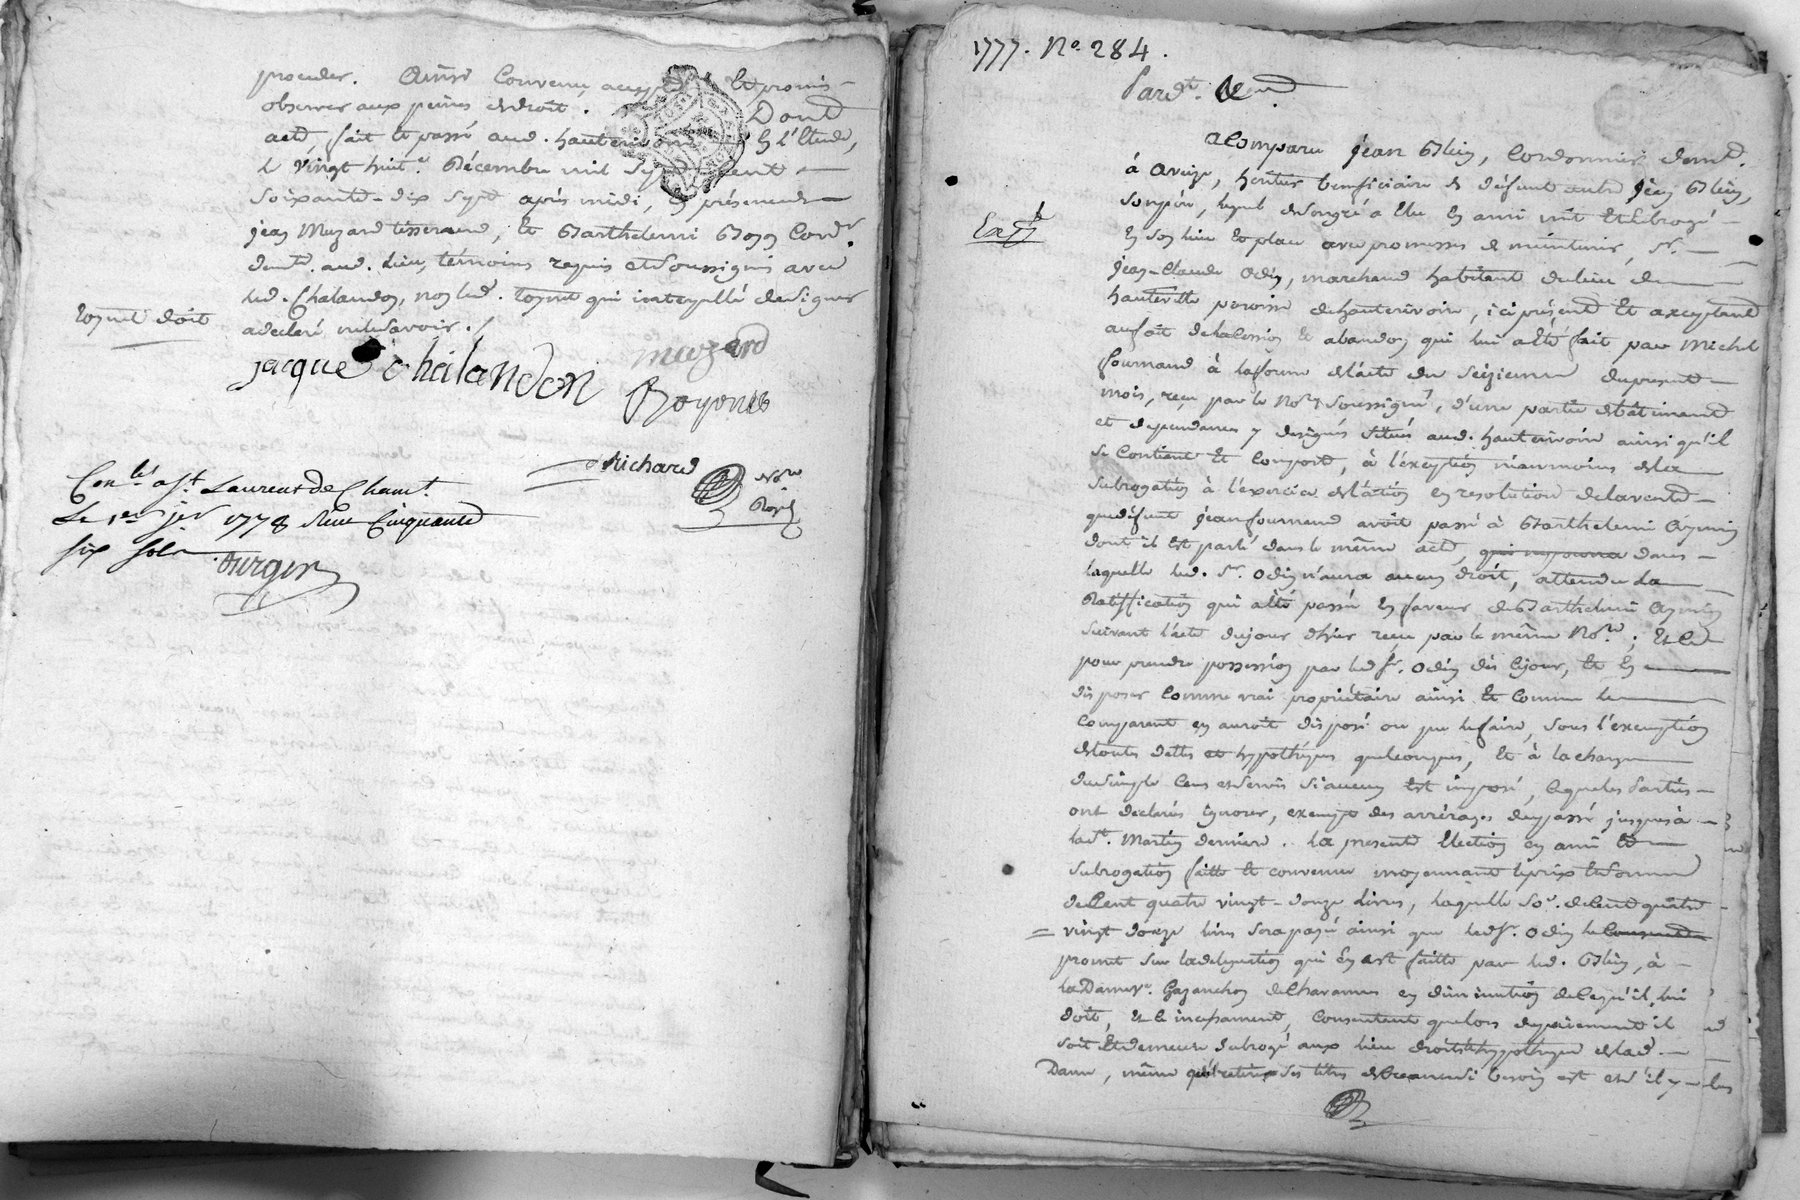 proceder. Ainsi Convenu, accepté Et promis
observer aux peines de droit. Dont
acte, fait et passé aud. hauterivoire En l'Etude,
le vingt huit.e Décembre mil sept cent
soixante-dix sept après midi, En présence de
jean Muzard tisserand, et Barthelemi Boyon Cord.r
demt. aud. Lieu, témoins requis et Soussignés avec
led. Chalandon, non led. toynet qui interpellé de signer
a declaré ne le savoir./
toynet doit
jacque chalandon
muzard
Boyonie
Richard
No.re
Royal
Con.lé a St. Laurent de Cham.t
Le 1er jer 1778 Reçu Cinquante
six sols
Aurgier
1777. No. 284.
Pardt.
Expé
a Comparu jean Blein, Cordonnier demt.
à Aveize, heritier beneficiaire de défunt autre jean Blein,
son père, lequel de son gré a Elu En ami mit Et subrogé
En son lieu Et place avec promesses de maintenir, Sr.
jean-Claude Odin, marchand habitant du lieu de
hauteville paroisse de hauterivoire, ici présent Et acceptant
au fait de la Cession Et abandon qui lui a été fait par Michel
fournand à la forme de l'acte du seizieme du present
mois, reçu par le No.re Soussigné, d'une partie de bâtiment
et dependances y designés situés aud. hauterivoire ainsi qu'il
se Contient Et Comporte, à l'exception néanmoins de la
subrogation à l'exercice de l'action en resolution de la vente
que défunt jean fournand avoit passé à Barthelemi Aymin
dont il Est parlé dans le même acte, dans
laquelle led. Sr. Odin n'aura aucun droit, attendu La
Ratiffication qui a été passée En faveur de Barthelemi Aymin
suivant l'acte du jour d'hier reçu par le même No.re; Et Ce
pour prendre possession par led. Sr. Odin dès Ce jour, Et En
disposer Comme vrai propriétaire ainsi Et Comme le
Comparant en auroit disposé ou pu le faire, sous l'exemption
de toutes dettes et hypothéques quelconques, Et à la charge
du simple Cens et Servis si aucun Est imposé, lequel les Parties
ont declarés ignorer, exempt des arrérages du passé jusqu'à
la St. Martin derniere. La presente Election en ami Et
subrogation faitte Et convenue moyennant le prix Et Somme
de Cent quatre vingt-douze Livres, laquelle So.e de Cent quatre
vingt douze livres sera payée ainsi que led. Sr. Odin le
promet sur la delegation qui en est faitte par led. Blein, à
la Dame ve. Gazanchon de Chavannes en diminution de Ce qu'il lui
doit, Et Ce incessament, Consentent que lors du payement il
soit Et demeure subrogé aux lieu droits Et hypotheque de lad.
Dame, même qu'il retire ses titres de Creance si besoin est et s'il y a lieu